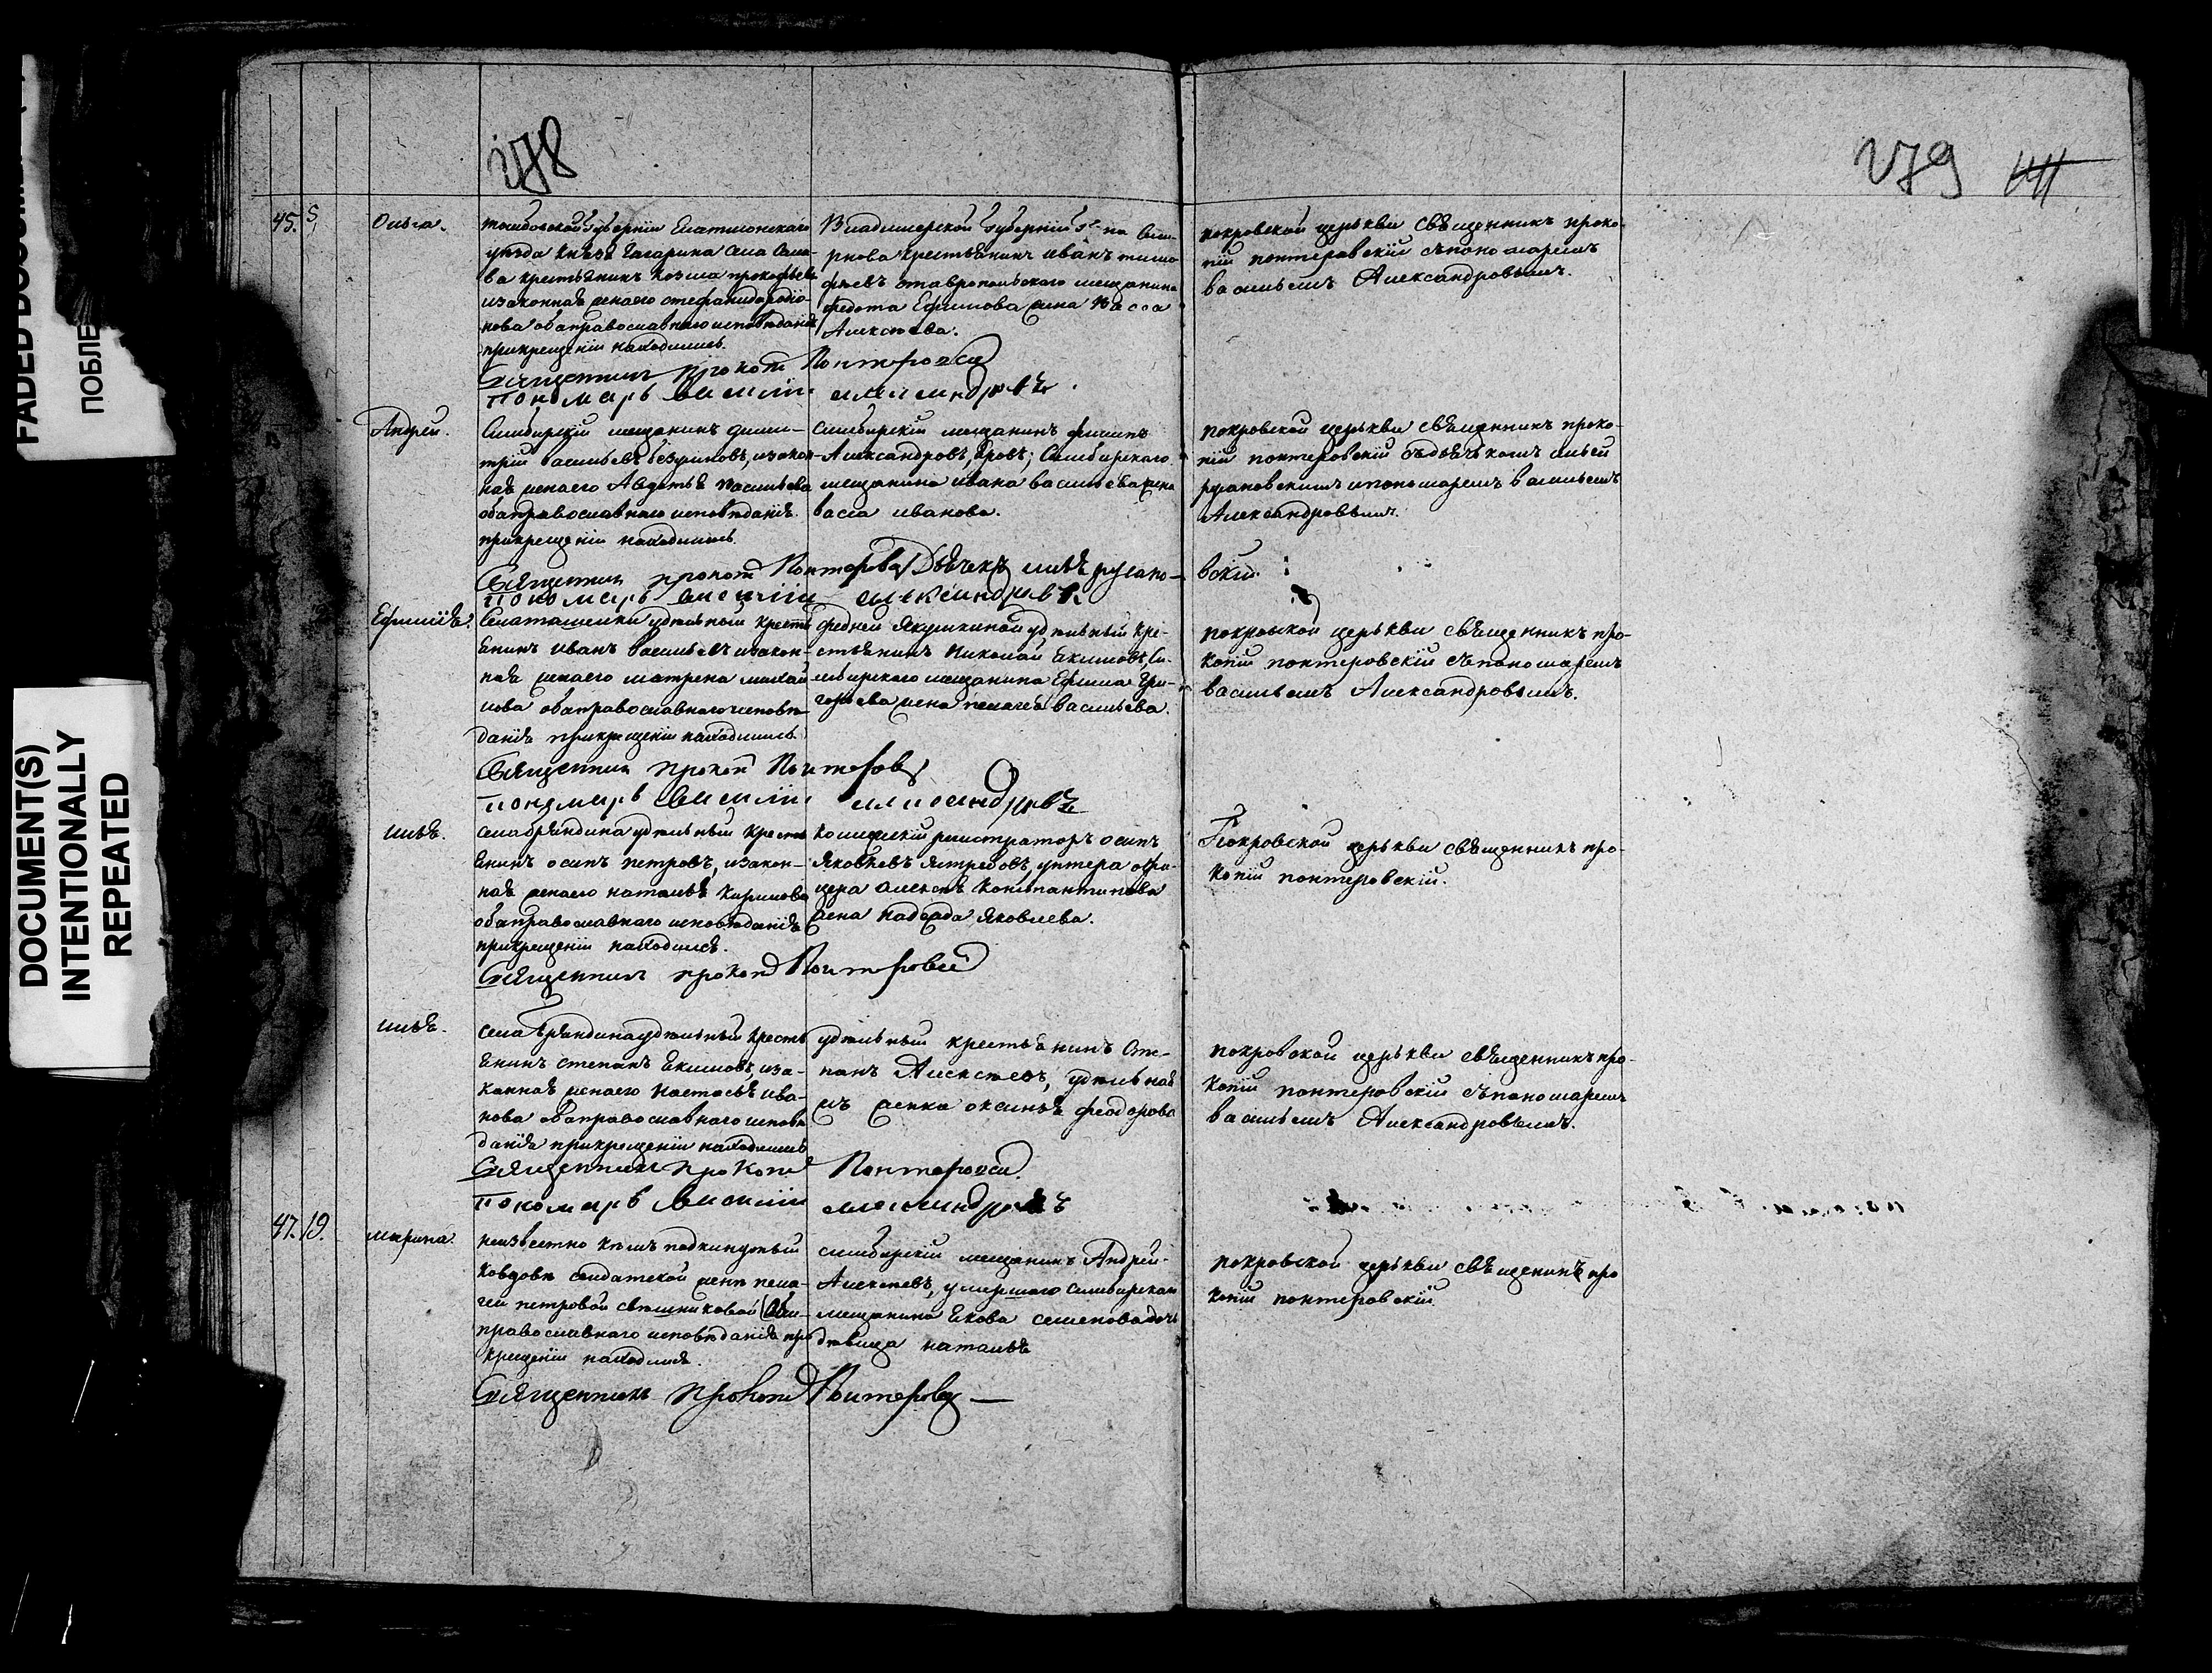 FADED DOCUMENT(S)
ПОБЛЕ
DOCUMENT(S)
INTENTIONALLY
REPEATED
278
279
45. 5.
Ольга.
Тамбовской губерніи Елатмонскаго
уѣзда Князя Гагарина села
крестьянинъ Козма прокофьевъ
изаконная женаего Стефанида родіо-
нова оба православнаго исповѣданія
прикрещеніи находились.
Владимерской губерніи
крестьянинъ иванъ тимо
фѣевъ ставропольскаго мещанина
федота Ефимова жена Васса
Алексѣева.
покровской церькви свѣщенникъ проко-
пій понтеровскій съпономаремъ
васильемъ Александровымъ.
Священникъ Прокопій Понтеровскій
Пономарь Василій александровъ.
Андрей.
Симбирскій мещанинъ дими-
трій васильевъ изакон-
ная женаего Авдотья васильева
оба православнаго исповѣданія.
прикрещеніи находились.
симбирскій мещанинъ филипъ
Александровъ, Симбирскаго
мещанина ивана васильева жена
васса иванова.
покровской церькви свѣщенникъ проко-
пій понтеровскій съдьячькомъ ильей
русановскимъ ипономаремъ васильемъ
Александровымъ.
Священникъ прокопій Понтеровскій Дьячекъ илья русано-
вскій.
Пономарь василій александровъ
Ефимія.
удѣльный кресть
янинъ иванъ васильевъ изакон-
ная женаего матрена михай
лова оба православнаго исповѣ
данія прикрещеніи находились
средней Якушкиной удѣльный кре-
стьянинъ Николай Екимовъ, Си-
мбирскаго мещанина Ефима Гри-
горьева жена пелагея васильева.
покровской церькви свѣщенникъ про-
копій понтеровскій съпономаремъ
васильемъ Александровымъ.
Священникъ прокопій Понтеровскій
пономарь Василій александровъ
илья.
села брандина удѣльный кресть
янинъ осипъ петровъ, изакон-
ная женаего наталья Кирилова
оба православнаго исповѣданія
прикрещеніи находился.
колежскій регистраторъ осипъ
Яковлевъ Ястребовъ, унтера офи-
цера алексѣя Константинова
жена надежда Яковлева.
Покровской церькви свѣщенникъ про-
копій понтеровскій.
Священникъ прокопій Понтеровскій
илья.
села брандина удѣльный кресть
янинъ степанъ Екимовъ, иза-
конная женаего настасья ива-
нова оба православнаго исповѣ
данія прикрещеніи находились
удѣльный крестьянинъ Сте-
панъ Алексѣевъ, удѣльная
женка оксинья феодорова
покровской церькви свѣщенникъ про-
копій понтеровскій съпономаремъ
васильемъ Александровымъ.
Священникъ Прокопій Понтеровскій
Пономарь Василій александровъ
47. 19.
марина.
неизвестно кѣмъ подкинутый
ковдовѣ солдатской женѣ пела-
геи петровой свѣшниковой
православнаго исповѣданія при
крещеніи находился.
симбирскій мещанинъ Андрей
Алексѣевъ, умершаго симбирскаго
мещанина Екова семенова дочь
дѣвица наталья
покровской церькви свѣщеникъ про
копій понтеровскій.
Священникъ Прокопій Понтеровскій